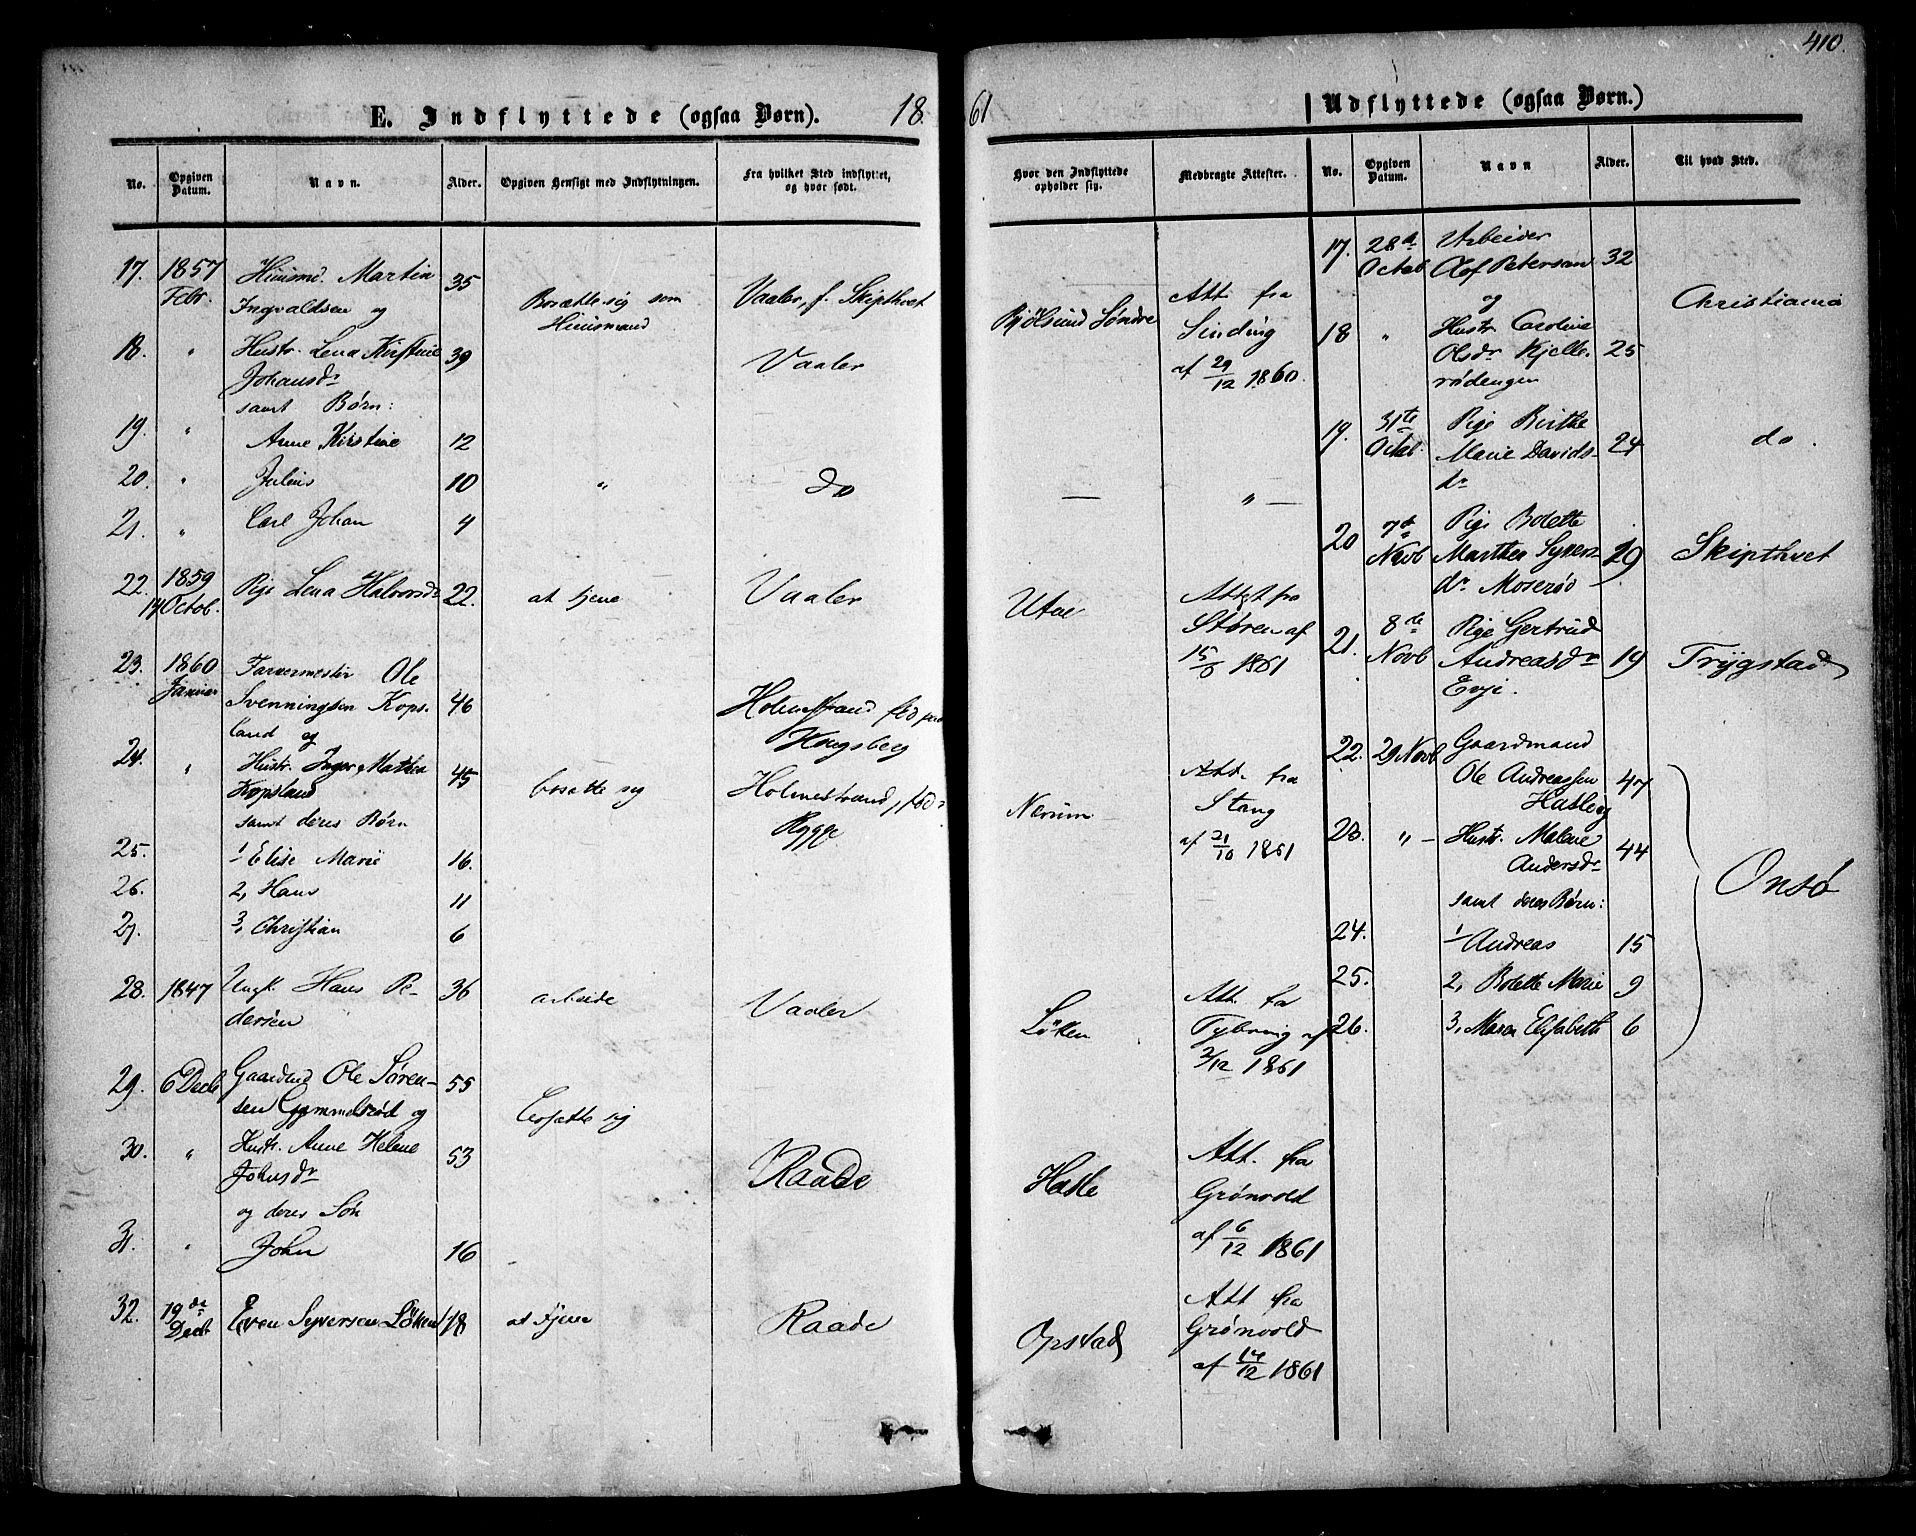 410.
E. Indflyttede (ogsaa Børn).
18
61
Udflyttede (ogsaa Børn.)
No.
Opgiven Datum.
Navn.
Alder.
Opgiven Hensigt med Indflytningen.
Fra hvilket Sted indflyttet, og hvor født.
Hvor den Indflyttede opholder sig.
Medbragte Attester.
No.
Opgiven Datum.
Navn
Alder.
Til hvad Sted.
17. 1857 Huusmd Martin 35
Febr. Ingvaldsen og
Bosætte sig som
Huusmand
Vaaler, f. Skipthvet
Bjølsund Søndre
Att. fra
Sinding
af 29/12 1860.
18. " Hustr. Lena Kirstine 39 Vaaler
Johansdr
samt Børn:
19. " Anne Kirstine 12
20. " Julius 10 " do — " —
21. " Carl Johan 4
22. 1859 Pige Lena Halvorsdr 22. at tjene Vaaler
14 Octob.
Utne
Attest fra
Støren af
1861
23. 1860 Farvermester Ole
Januar Svenningsen Kops- 46
land og
Holmestrand, fød paa
Kongsberg
24. " Hustr. Inger Mathea 45 bosætte sig Holmestrand, fød
Kopsland Rygge
samt deres Børn
Nerum
Att. fra
Stang
af 21/10 1861
25. 1 Elise Marie 16.
26. 2, Hans 11
27. 3, Christian 6
28. 1847 Ungk. Hans Pe- 36 arbeide Vaaler
dersen
Løken
Att. fra
Tybring af
3/12 1861
29. 6 Decb Gaardmd Ole Søren- 55
sen Gammelsrød og
bosætte sig
30. " Hustr. Anne Helene 53 Raade
Johnsdr
og deres Søn
Hasle
Att. fra
Grønvold
af 6/12 1861
31. " John 16
32. 19de Even Syversen Løken 18 at tjene Raade
Decb
Opstad
Att fra
Grønvold
af 19/12 1861
17. 28de Arbeider
Octob Olof Peterson 32
og
Christiania
18 " Hustr. Caroline
Olsdr Kjelle- 25
rødengen
19. 31te Pige Birthe
Octob. Marie Davids- 24 do.
dr
20 7de Pige Bolette
Novb Marthea Syvers- 19 Skipthvet
dr Moserød
21. 8de Pige Gertrud
Novb Andreasdr 19 Trygstad
Evje.
22. 29 Novb Gaardmand
Ole Andreassen 47
Hasle og
23. " — Hustr. Malene 44
Andersdr
samt deres Børn:
Onsø
24. 1 Andreas 15
25. 2, Bolette Marie 9
26. 3, Maren Elisabeth 6